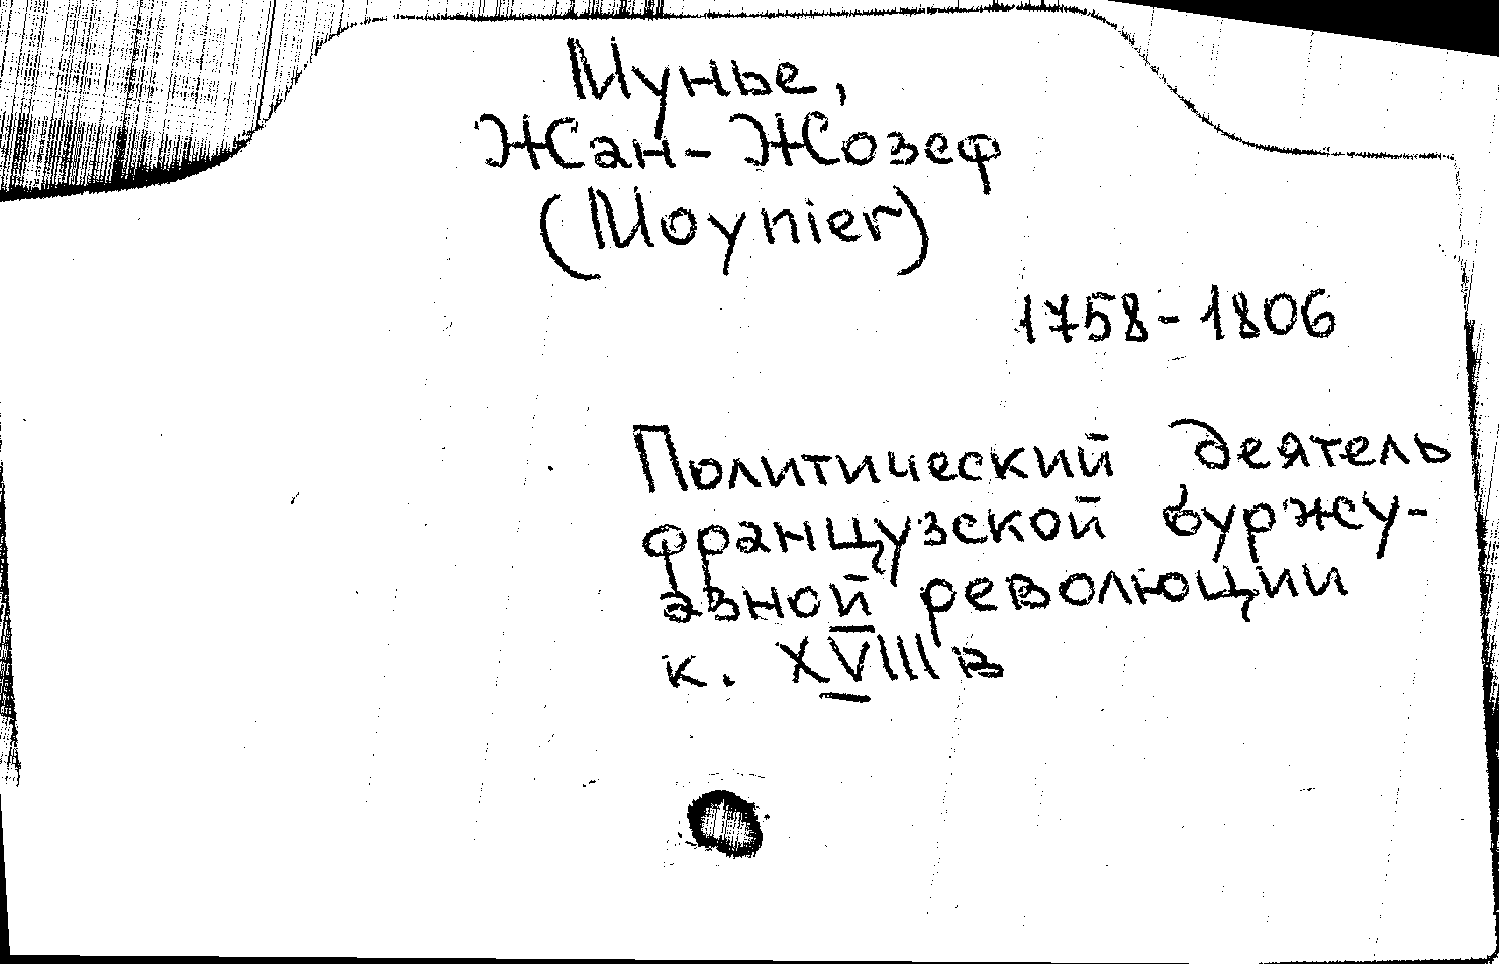 Мунье,
Жан-Жозеф
(Moynier)
1758-1806
Политический деятель
французской буржу-
азной революции
к. XVIII в